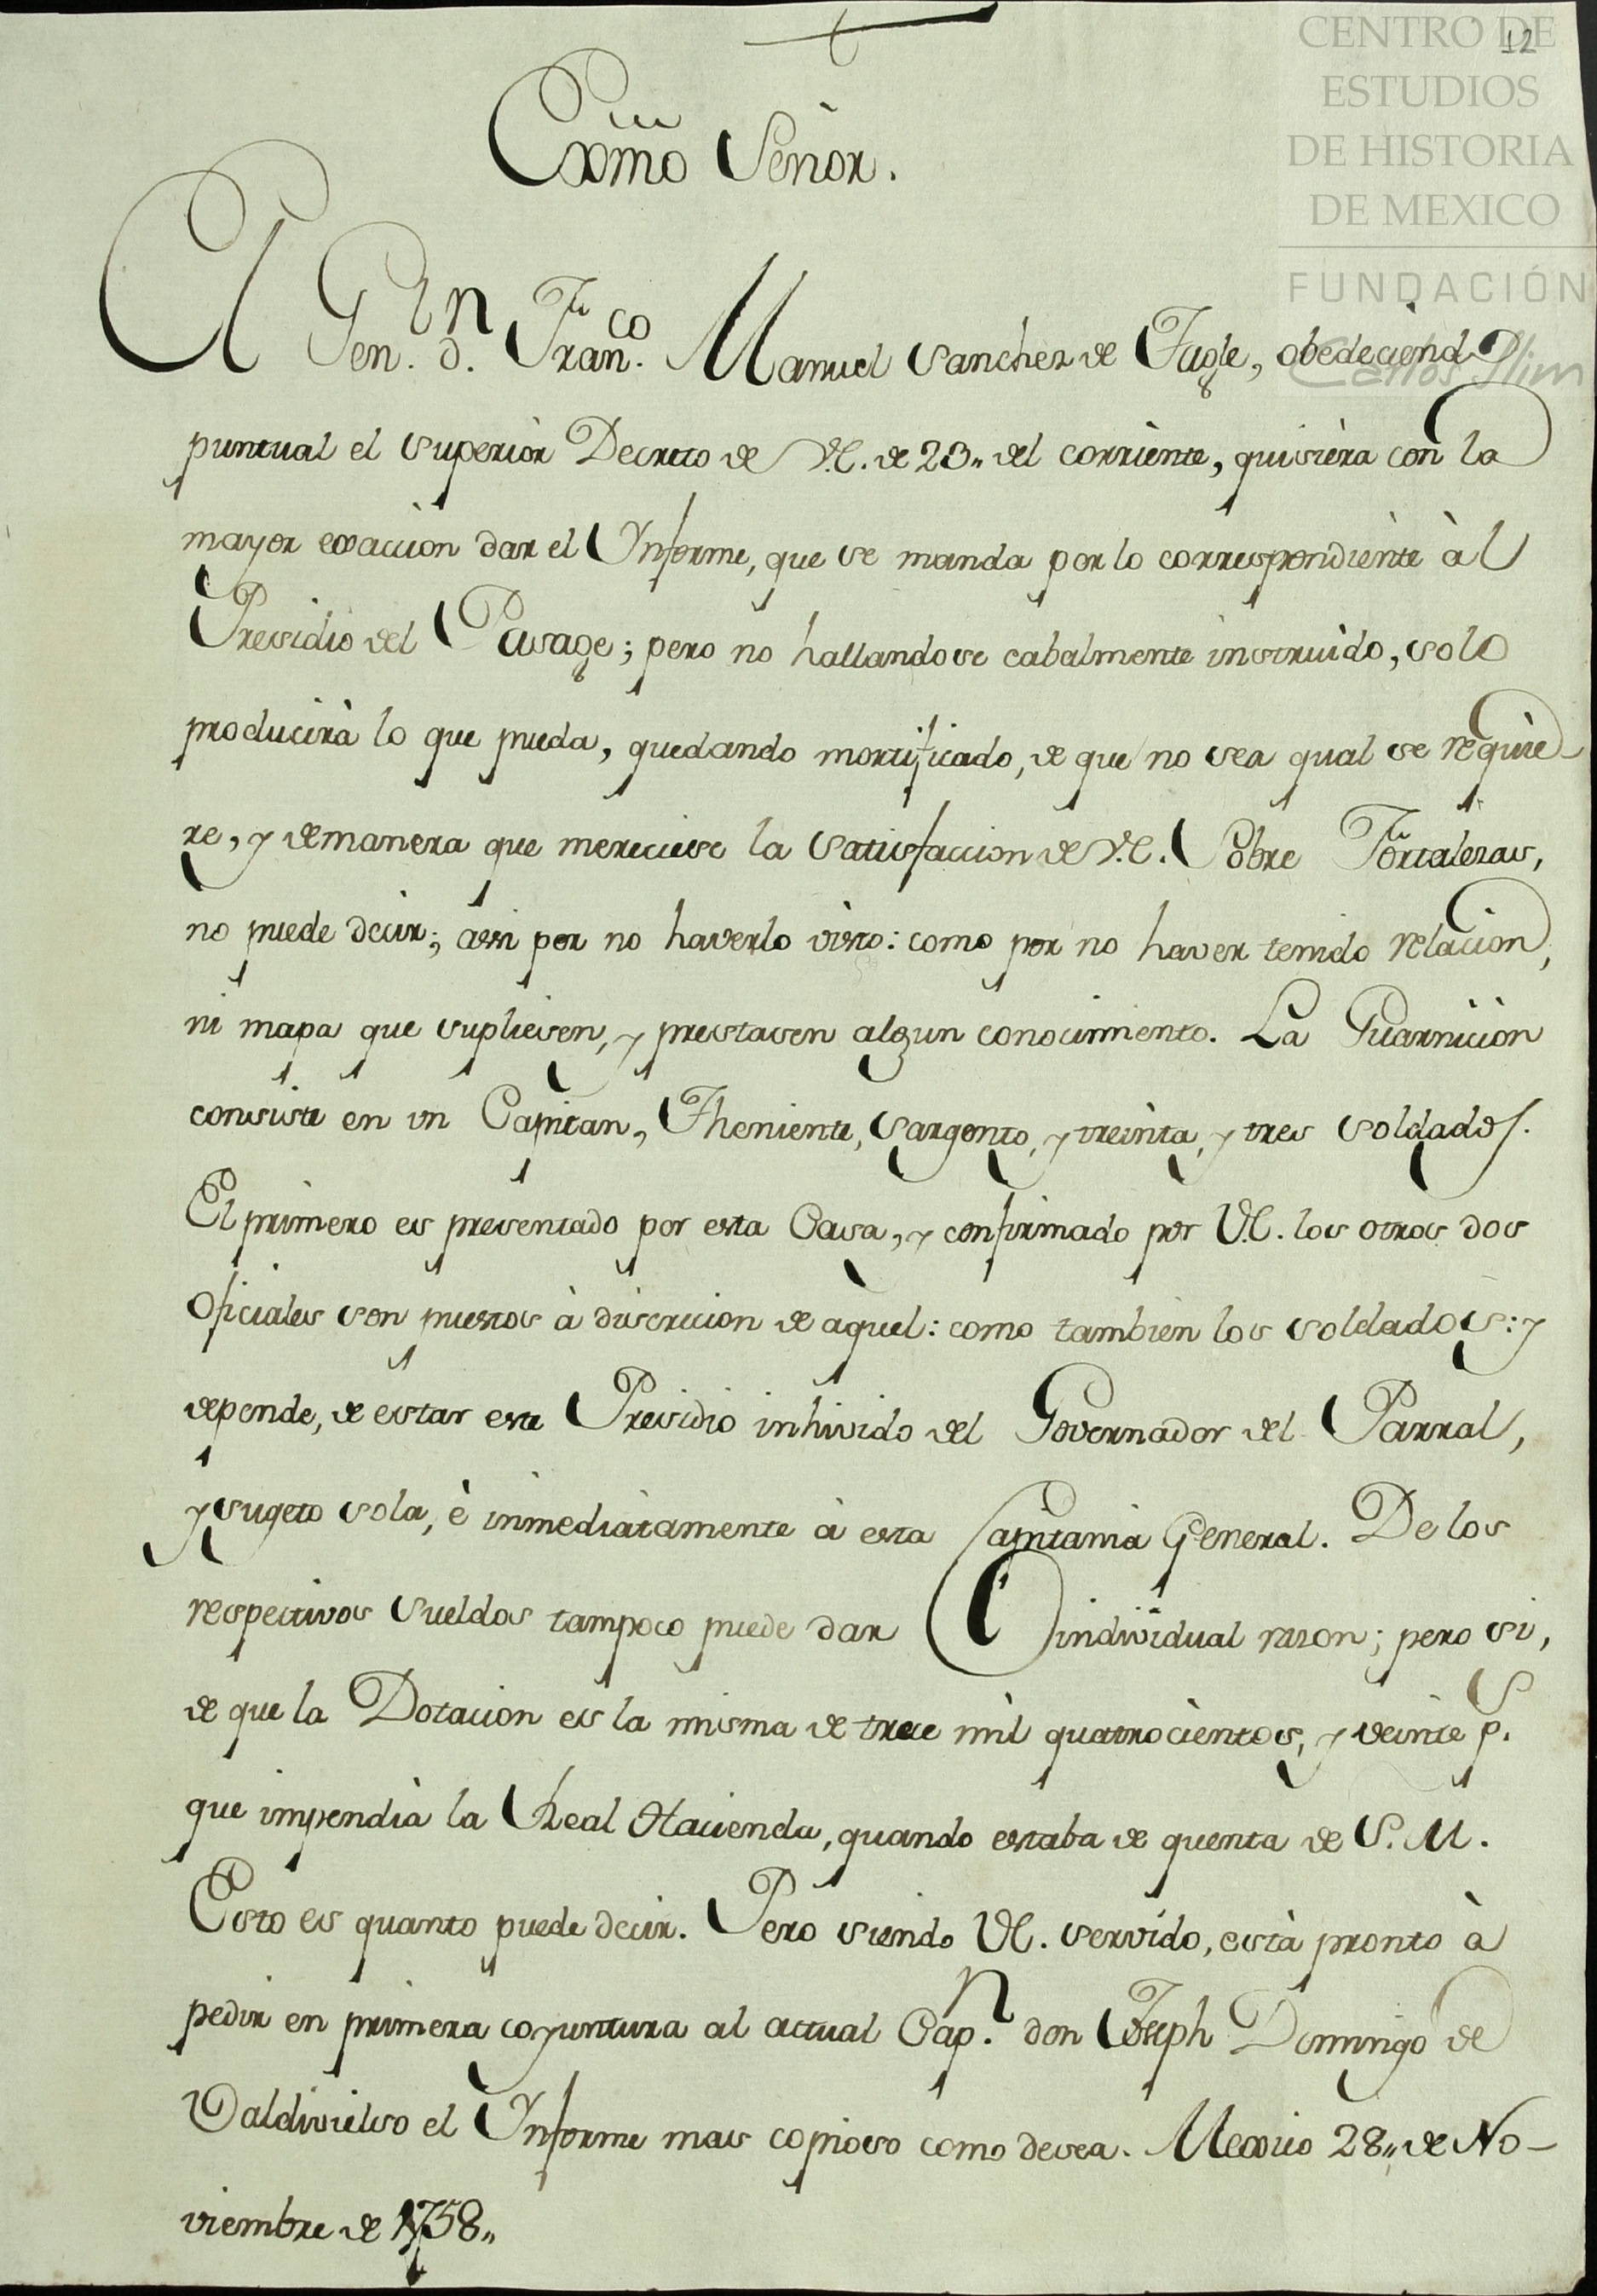 12
CENTRO DE
ESTUDIOS
DE HISTORIA
DE MEXICO
FUNDACIÓN
Carlos Slim
Exmo Señor.
El Gen.l d.n Fran.co Manuel Sanchez de Tagle, obedeciendo
puntual el superiòr Decreto de V.E. de 23,, del corriente, quisièra con la
mayor exacciòn dar el Ynforme, que se manda por lo correspondiènte àl
Presidio del Pasage; pero no hallandose cabalmente instruìdo, solo
producirà lo que pueda, quedando mortificado, de que no sea qual se requiè-
re, y demanera que mereciese la satisfaccion de V.E. Sobre Fortalezas,
no puede decir; assi por no haverlo visto: como por no haver tenido relacion,
ni mapa que supliesen, y prestasen algun conocimiento. La Guarniciòn
consiste en vn Capitan, Theniente, Sargento, y treìnta, y tres soldados.
El primero es presentado por esta Casa, y confirmado por V.E. los otros dos
Oficiales son puestos à discrecion de aquel: como tambien los soldados: y
depende, de estar este Presidio inhivido del Governador del Parral,
y sugeto sola, è inmediatamente à esta Capitanìa General. De los
respectivos sueldos tampoco puede dar individual razon; pero si,
de que la Dotacion es la misma de trece mil quatrocientos, y veinte p.s
que impendìa la Real Hacienda, quando estaba de quenta de S.M.
Esto es quanto puede decir. Pero siendo VE. servido, està pronto à
pedir en primera coyuntura al actual Cap.n don Joseph Domingo de
Valdivielso el Ynforme mas copioso como desea. Mexico 28,, de No-
viembre de 1758,,